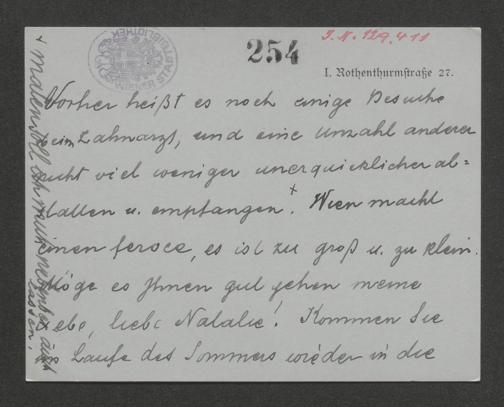 I. N. 129.411
254
I. Rothenthurmstraße 27.
Vorher heißt es noch einige Besuche
beim Zahnarzt, und eine Unzahl anderer
nicht viel weniger unerquicklicher ab=
statten u. empfangen +. Wien macht
einen feroce, es ist zu groß u. zu klein.
Möge es Ihnen gut gehen meine
liebe, liebe Natalie! Kommen Sie
im Laufe des Sommers wieder in die
+ malen soll ich mich
lassen.